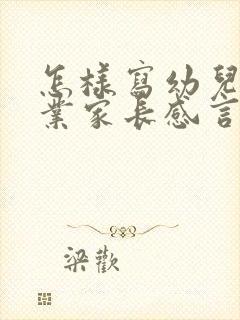 怎樣寫幼兒
業家長感言
梁歡